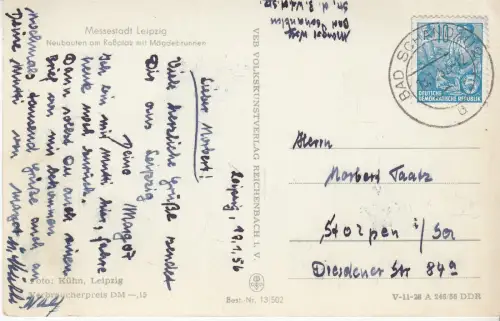 Messestadt Leipzig
Neubauten am Roßplatz mit Mägdebrunnen
Leipzig, 19.1.56
Lieber Norbert!
Viele herzliche Grüße sendet
Dir aus Leipzig
Deine Margot
Ich bin mit Mutti hier, fahre
heute noch zurück.
Dann sollst Du auch einen
Brief von mir bekommen.
Nochmals tausend Grüße auch an
Deine Mutti von Margot
Foto: Kühn, Leipzig
Verbraucherpreis DM —,15
VEB VOLKSKUNSTVERLAG REICHENBACH I. V.
Best.-Nr. 13/502
BAD SCHANDAU
DEUTSCHE
DEMOKRATISCHE REPUBLIK
Herrn
Norbert Taatz
Stolpen i/Sa
Dresdener Str 84a
V-11-28 A 246/56 DDR